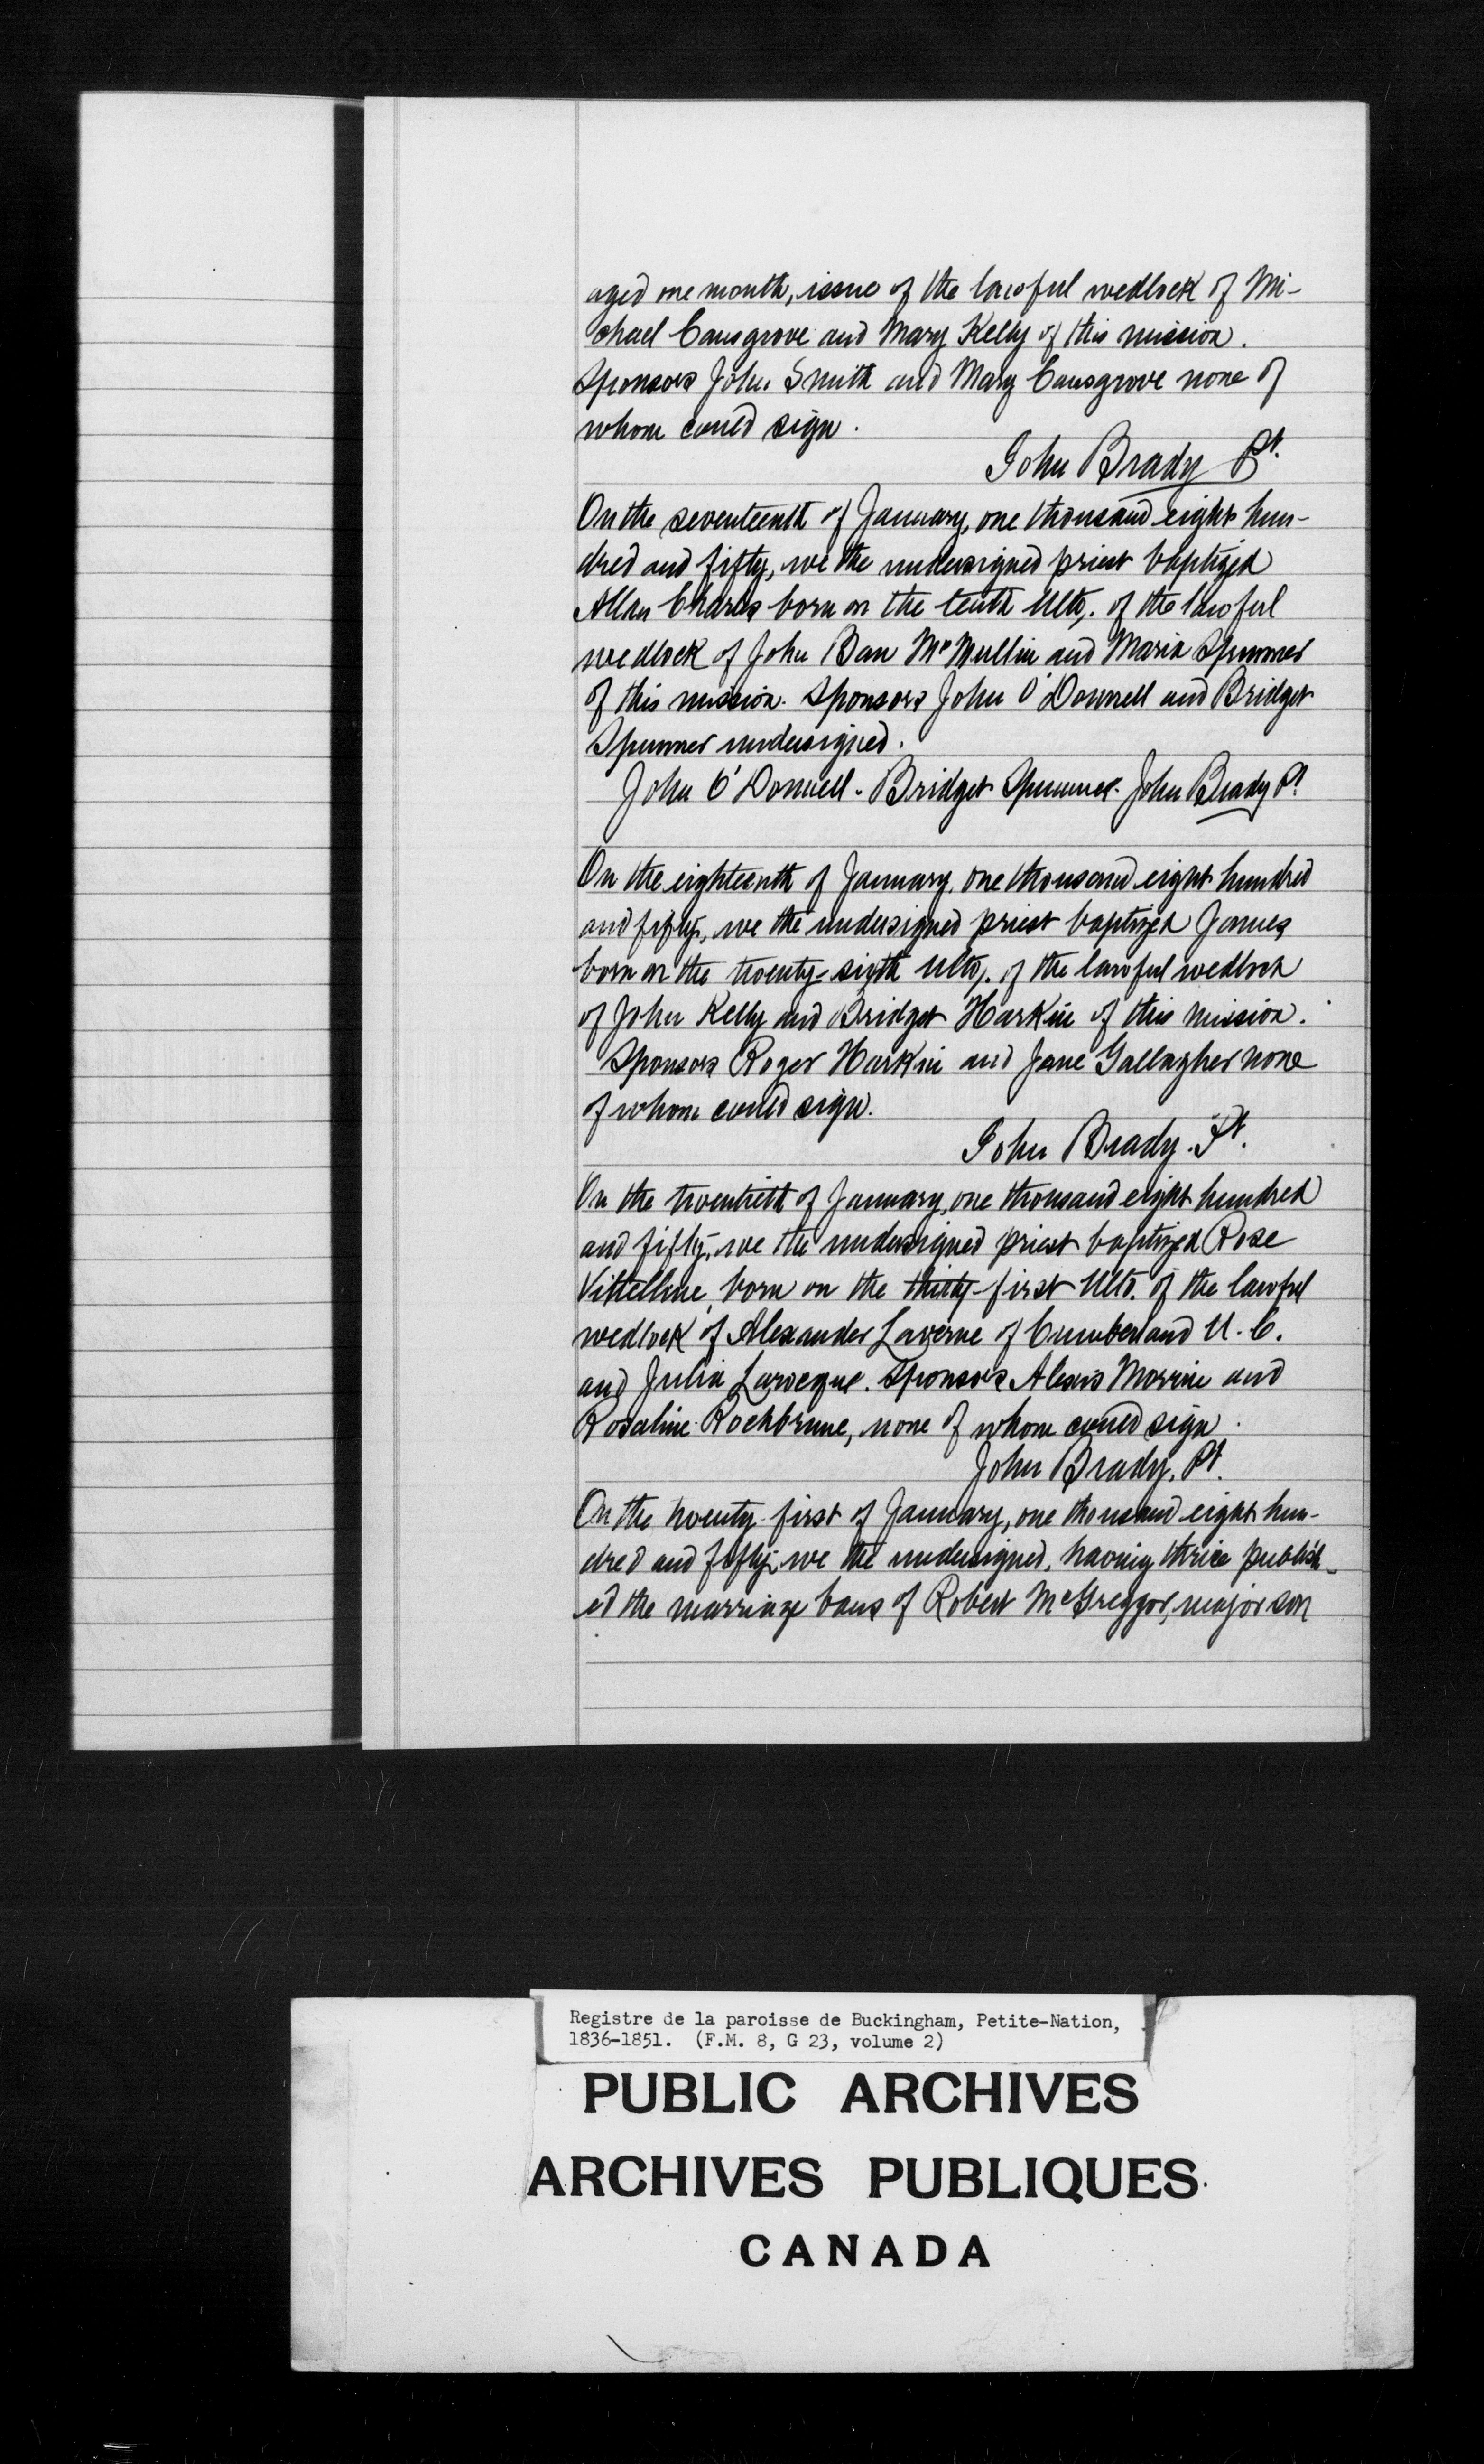 aged one month, issue of the lawful wedlock of Mi-
chael Causgrove and Mary Kelly of this mission.
Sponsors John Smith and Mary Causgrove none of
whom could sign.
John Brady Pt.
On the seventeenth of January, one thousand eight hun-
dred and fifty, we the undersigned priest baptized
Allan Charles born on the tenth Ulto,. of the lawful
wedlock of John Ban McMullin and Maria Spunner
of this mission. Sponsors John O'Donnell and Bridget
Spunner undersigned.
John O'Donnell. Bridget Spunner. John Brady Pt.
On the eighteenth of January, one thousand eight hundred
and fifty, we the undersigned priest baptized James
born on the twenty-sixth Ulto,. of the lawful wedlock
of John Kelly and Bridget Harkin of this mission.
Sponsors Roger Harkin and Jane Gallagher none
of whom could sign.
John Brady. Pt.
On the twentieth of January, one thousand eight hundred
and fifty, we the undersigned priest baptized Rose
Vittelline, born on the thirty-first Ulto. of the lawful
wedlock of Alexander Laverne of Cumberland U. C.
and Julia Larocque. Sponsors Alexis Morrin and
Rosaline Rochbrune, none of whom could sign.
John Brady. Pt.
On the twenty-first of January, one thousand eight hun-
dred and fifty, we the undersigned, having thrice publish-
ed the marriage bans of Robert McGreggor, major son
Registre de la paroisse de Buckingham, Petite-Nation,
1836-1851. (F.M. 8, G 23, volume 2)
PUBLIC ARCHIVES
ARCHIVES PUBLIQUES
CANADA